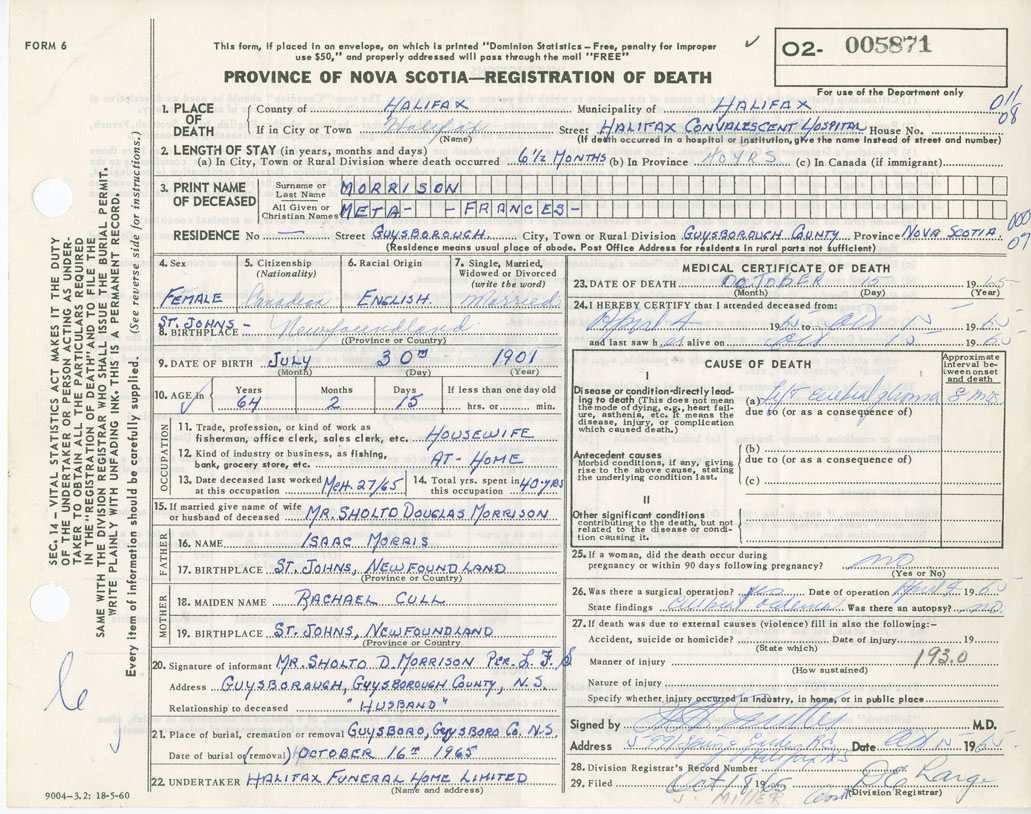 FORM 6
This form, if placed in an envelope, on which is printed "Dominion Statistics – Free, penalty for improper
use $50," and properly addressed will pass through the mail "FREE"
PROVINCE OF NOVA SCOTIA—REGISTRATION OF DEATH
O2- 005871
For use of the Department only
011
08
1. PLACE OF DEATH County of HALIFAX Municipality of HALIFAX
If in City or Town Halifax Street HALIFAX CONVALESCENT HOSPITAL House No.
(Name) (If death occurred in a hospital or institution, give the name instead of street and number)
2. LENGTH OF STAY (in years, months and days)
(a) In City, Town or Rural Division where death occurred 6½ MONTHS (b) In Province 40 YRS (c) In Canada (if immigrant)
3. PRINT NAME OF DECEASED
Surname or Last Name MORRISON
All Given or Christian Names META - - FRANCES -
RESIDENCE No — Street GUYSBOROUGH City, Town or Rural Division GUYSBOROUGH COUNTY Province NOVA SCOTIA
(Residence means usual place of abode. Post Office Address for residents in rural parts not sufficient)
000
07
4. Sex FEMALE
5. Citizenship (Nationality) Canadian
6. Racial Origin ENGLISH
7. Single, Married, Widowed or Divorced (write the word) Married
8. BIRTHPLACE ST. JOHNS - Newfoundland
(Province or Country)
9. DATE OF BIRTH JULY 30TH 1901
(Month) (Day) (Year)
10. AGE in Years 64 Months 2 Days 15 If less than one day old hrs. or min.
OCCUPATION
11. Trade, profession, or kind of work as fisherman, office clerk, sales clerk, etc. HOUSEWIFE
12. Kind of industry or business, as fishing, bank, grocery store, etc. AT - HOME
13. Date deceased last worked at this occupation MCH. 27/65
14. Total yrs. spent in this occupation 40 YRS
15. If married give name of wife or husband of deceased MR. SHOLTO DOUGLAS MORRISON
FATHER
16. NAME ISAAC MORRIS
17. BIRTHPLACE ST. JOHNS, NEWFOUNDLAND
(Province or Country)
MOTHER
18. MAIDEN NAME RACHAEL CULL
19. BIRTHPLACE ST. JOHNS, NEWFOUNDLAND
(Province or Country)
20. Signature of informant MR. SHOLTO D. MORRISON PER. L F S
Address GUYSBOROUGH, GUYSBOROUGH COUNTY, N.S.
Relationship to deceased "HUSBAND"
21. Place of burial, cremation or removal GUYSBORO, GUYSBORO CO. N.S.
Date of burial or (removal) OCTOBER 16TH 1965
22. UNDERTAKER HALIFAX FUNERAL HOME LIMITED
(Name and address)
9004–3.2: 18-5-60
MEDICAL CERTIFICATE OF DEATH
23. DATE OF DEATH OCTOBER 15 1965
(Month) (Day) (Year)
24. I HEREBY CERTIFY that I attended deceased from:
April 4 1965 to Oct 15 1965
and last saw her alive on Oct 15 1965
CAUSE OF DEATH
Approximate interval between onset and death
I
Disease or condition directly leading to death (This does not mean the mode of dying, e.g., heart failure, asthenia, etc. It means the disease, injury, or complication which caused death.)
(a) Left cerebral glioma 8 mos.
due to (or as a consequence of)
Antecedent causes
Morbid conditions, if any, giving rise to the above cause, stating the underlying condition last.
(b)
due to (or as a consequence of)
(c)
II
Other significant conditions
contributing to the death, but not related to the disease or condition causing it.
25. If a woman, did the death occur during pregnancy or within 90 days following pregnancy? no
(Yes or No)
26. Was there a surgical operation? yes Date of operation April 9 1965
State findings cerebral oedema Was there an autopsy? no
27. If death was due to external causes (violence) fill in also the following:–
Accident, suicide or homicide? Date of injury 19
(State which)
Manner of injury 193.0
(How sustained)
Nature of injury
Specify whether injury occurred in industry, in home, or in public place
Signed by M.D.
Address Spring Garden Rd. Halifax NS Date Oct 15 1965
28. Division Registrar's Record Number
29. Filed Oct 18 1965 D C Large
(Division Registrar)
J. MILLER
SEC. 14 – VITAL STATISTICS ACT MAKES IT THE DUTY
OF THE UNDERTAKER OR PERSON ACTING AS UNDER-
TAKER TO OBTAIN ALL THE PARTICULARS REQUIRED
IN THE "REGISTRATION OF DEATH" AND TO FILE THE
SAME WITH THE DIVISION REGISTRAR WHO SHALL ISSUE THE BURIAL PERMIT.
WRITE PLAINLY WITH UNFADING INK. THIS IS A PERMANENT RECORD.
Every item of information should be carefully supplied. (See reverse side for instructions.)